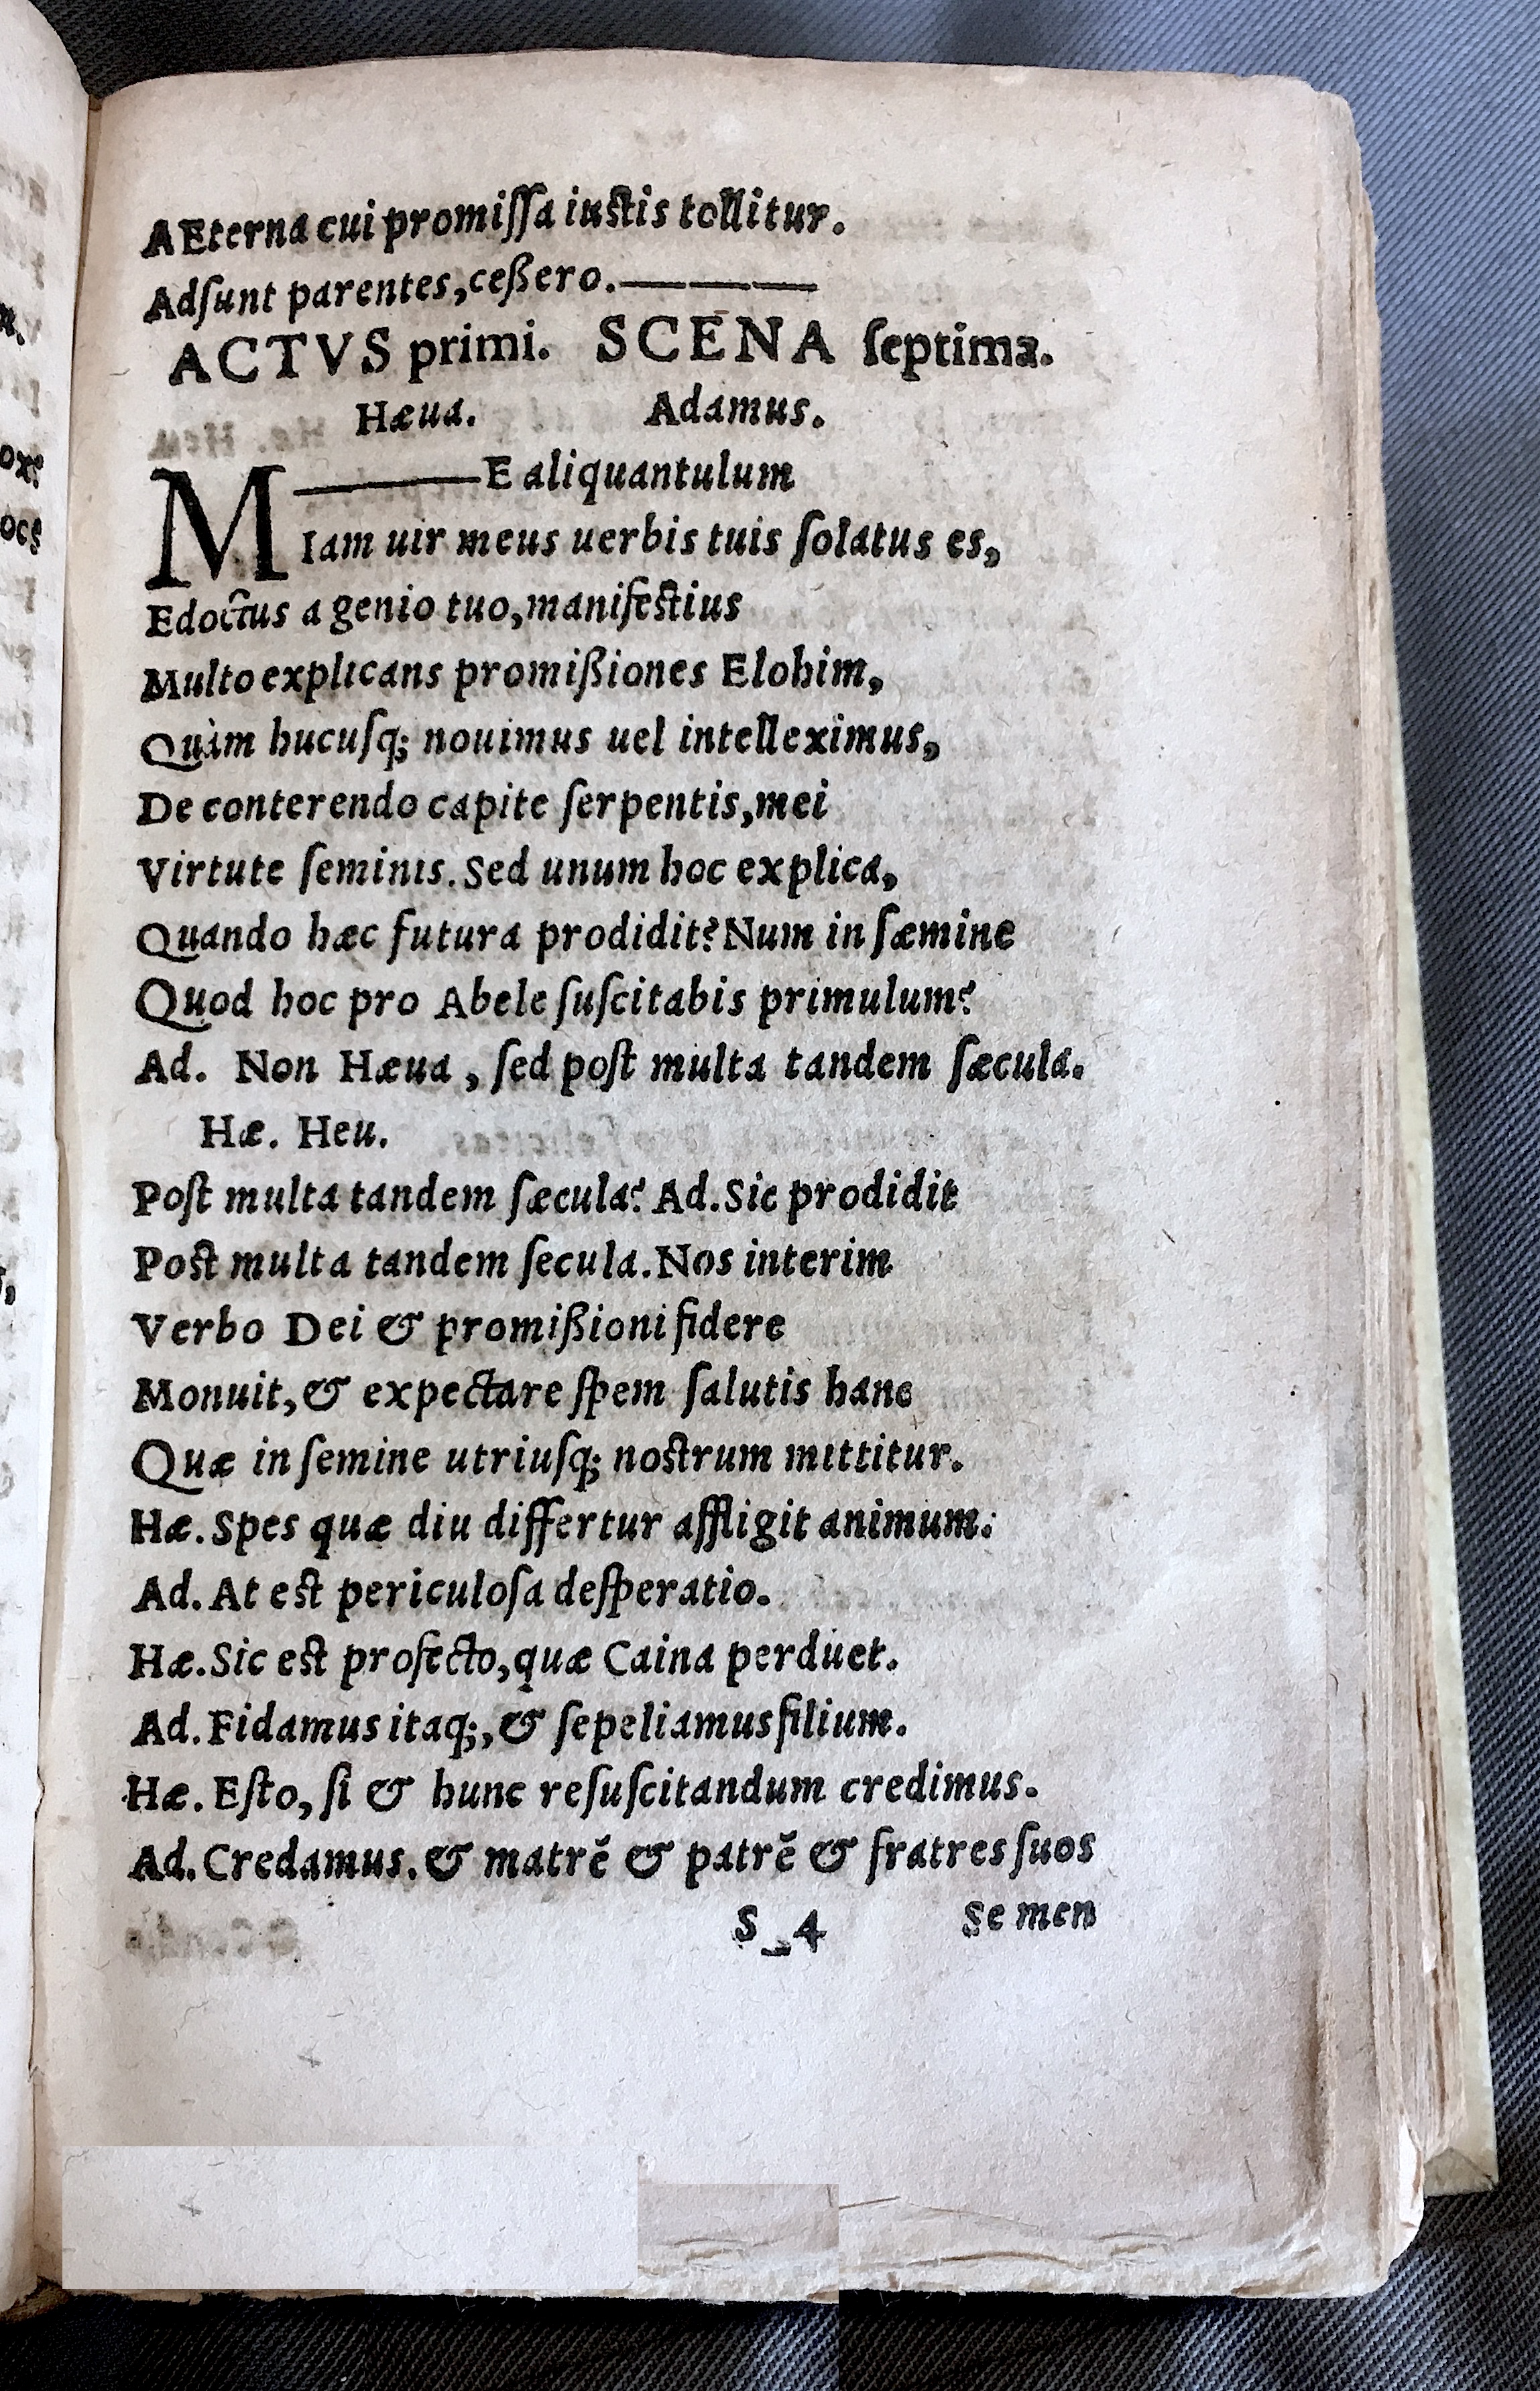 AEterna cui promiſſa iustis tollitur.
Adſunt parentes, ceßero.———
ACTVS primi. SCENA ſeptima.
Hæua. Adamus.
M———E aliquantulum
Iam uir meus uerbis tuis ſolatus es,
Edoctus a genio tuo, manifestius
Multo explicans promißiones Elohim,
Quàm hucuſq; nouimus uel intelleximus,
De conterendo capite ſerpentis, mei
Virtute ſeminis. Sed unum hoc explica,
Quando hæc futura prodidit? Num in ſæmine
Quod hoc pro Abele ſuſcitabis primulum?
Ad. Non Hæua, ſed poſt multa tandem ſæcula.
Hæ. Heu.
Poſt multa tandem ſæcula? Ad. Sic prodidit
Post multa tandem ſecula. Nos interim
Verbo Dei & promißioni fidere
Monuit, & expectare ſpem ſalutis hanc
Quæ in ſemine utriuſq; nostrum mittitur.
Hæ. Spes quæ diu differtur affligit animum.
Ad. At est periculoſa deſperatio.
Hæ. Sic est profecto, quæ Caina perduet.
Ad. Fidamus itaq;, & ſepeliamus filium.
Hæ. Eſto, ſi & hunc reſuſcitandum credimus.
Ad. Credamus. & matrē & patrē & fratres ſuos
S 4 Semen